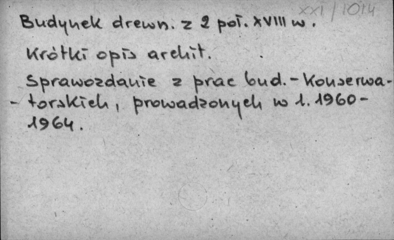 XXI/1014
Budynek drewn. z 2 poł. XVIII w.
Krótki opis archit.
Sprawozdanie z prac bud.-Konserwa-
-torskich, prowadzonych w l. 1960-
1964.